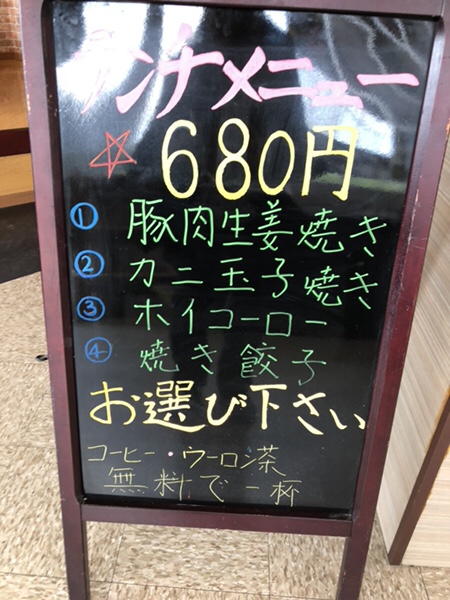 ランチメニュー
☆680円
① 豚肉生姜焼き
② カニ玉子焼き
③ ホイコーロー
④ 焼き餃子
お選び下さい
コーヒー・ウーロン茶
無料で一杯